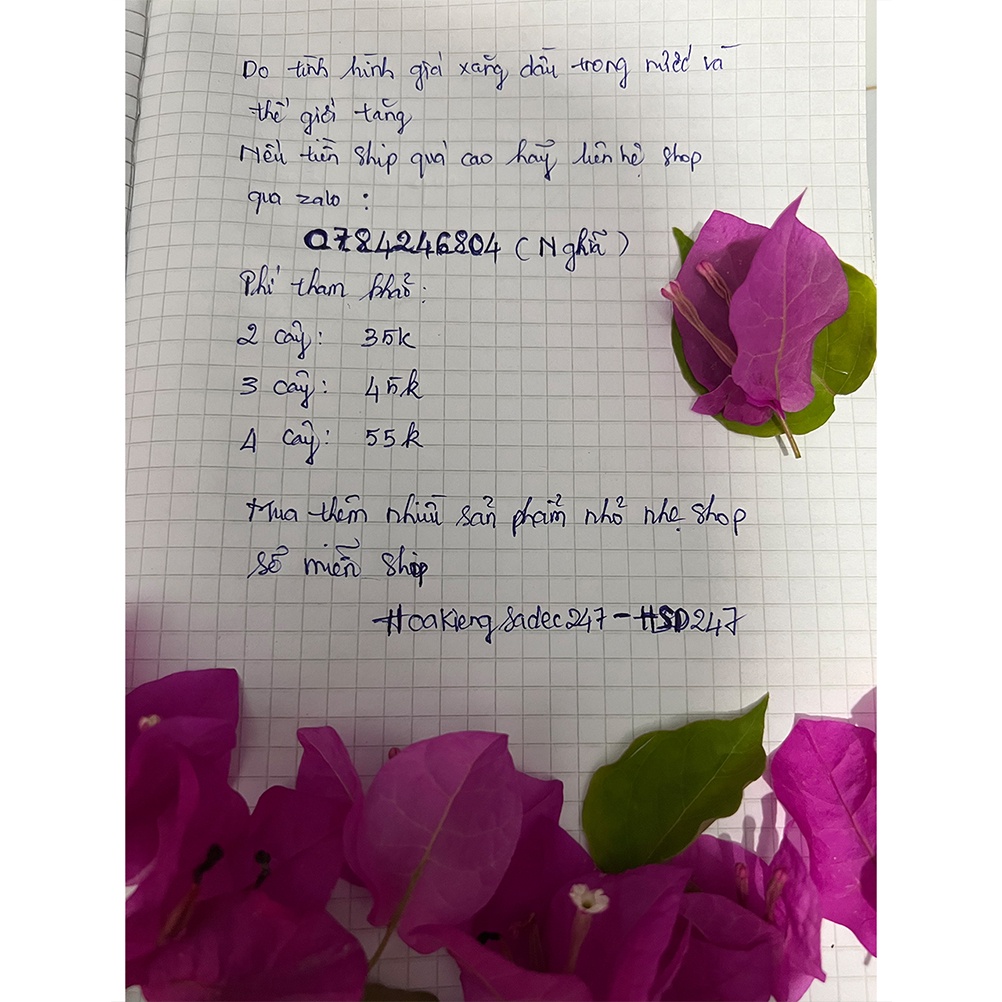 Do tình hình giá xăng dầu trong nước và
thế giới tăng
Nếu tiền ship quá cao hãy liên hệ shop
qua zalo :
0784246804 ( Nghĩa )
Phí tham khảo :
2 cây : 35k
3 cây : 45k
4 cây : 55k
Mua thêm nhiều sản phẩm nhỏ nhẹ shop
sẽ miễn ship
Hoakiengsadec247 - HSD247